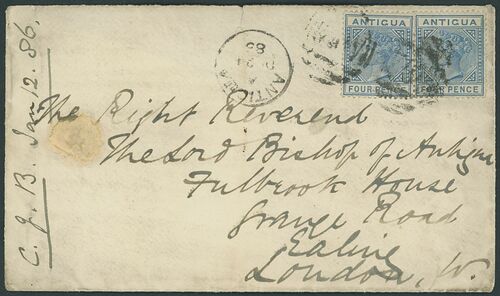 ANTIGUA ANTIGUA
FOUR PENCE FOUR PENCE
ANTIGUA
85
The Right Reverend
The Lord Bishop of Antigua
Fulbrook House
Grange Road
Ealing
London, W.
C. J. B. Jan 12. 86.